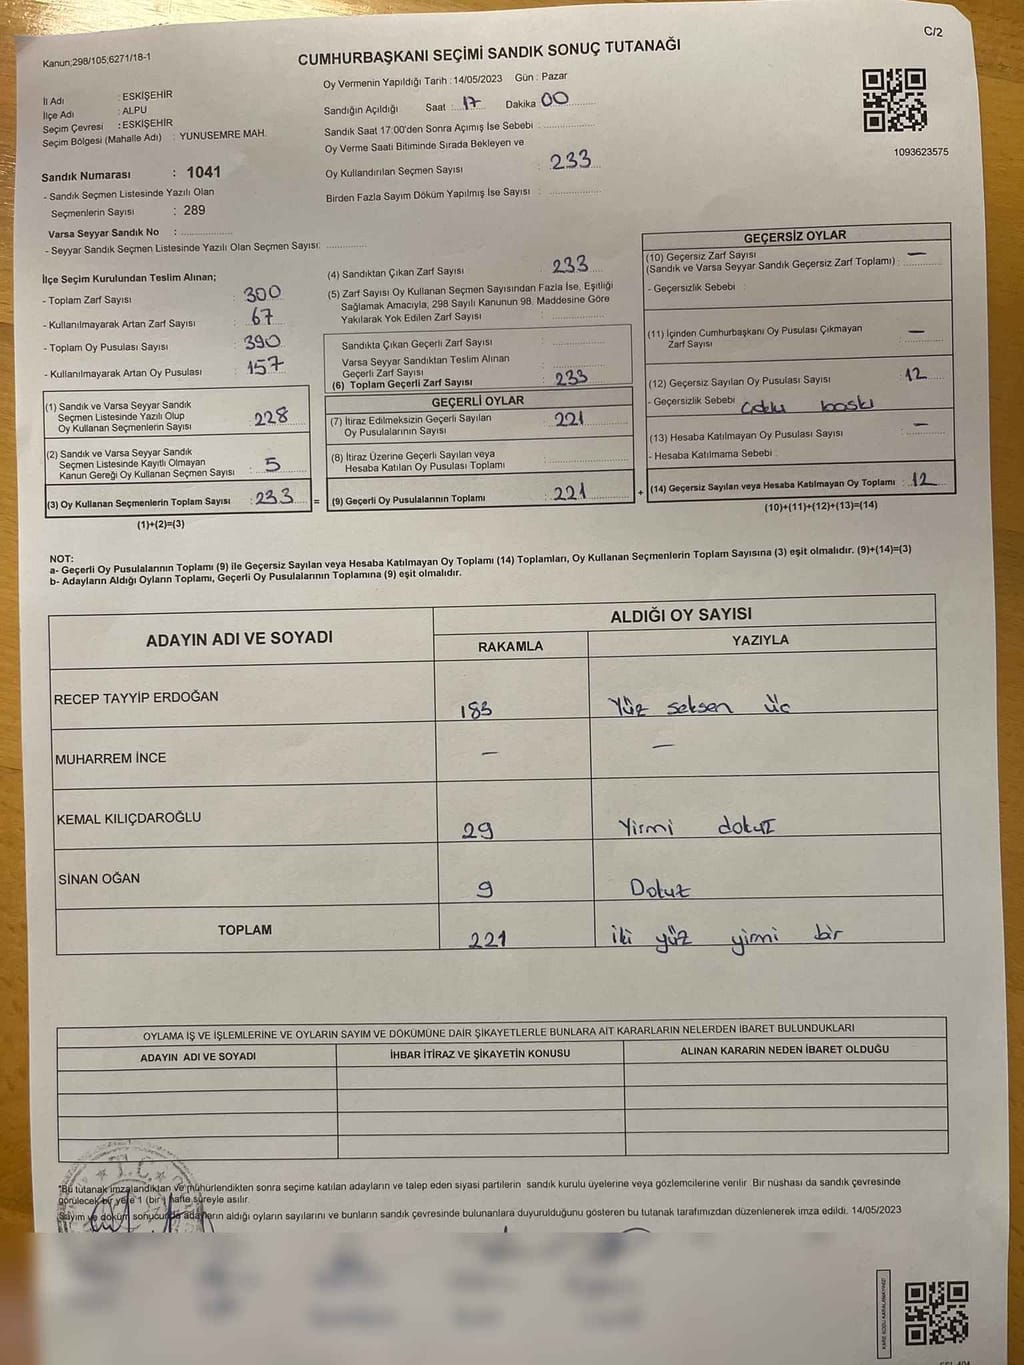 C/2
Kanun;298/105;6271/18-1
CUMHURBAŞKANI SEÇİMİ SANDIK SONUÇ TUTANAĞI
İl Adı : ESKİŞEHİR
İlçe Adı : ALPU
Seçim Çevresi : ESKİŞEHİR
Seçim Bölgesi (Mahalle Adı) : YUNUSEMRE MAH.
Oy Vermenin Yapıldığı Tarih : 14/05/2023 Gün : Pazar
Sandığın Açıldığı Saat : 17 Dakika 00
Sandık Saat 17:00'den Sonra Açımış İse Sebebi :
Oy Verme Saati Bitiminde Sırada Bekleyen ve
Oy Kullandırılan Seçmen Sayısı : 233
Birden Fazla Sayım Döküm Yapılmış İse Sayısı :
1093623575
Sandık Numarası : 1041
- Sandık Seçmen Listesinde Yazılı Olan
Seçmenlerin Sayısı : 289
Varsa Seyyar Sandık No :
- Seyyar Sandık Seçmen Listesinde Yazılı Olan Seçmen Sayısı:
İlçe Seçim Kurulundan Teslim Alınan;
- Toplam Zarf Sayısı : 300
- Kullanılmayarak Artan Zarf Sayısı : 67
- Toplam Oy Pusulası Sayısı : 390
- Kullanılmayarak Artan Oy Pusulası : 157
(1) Sandık ve Varsa Seyyar Sandık
Seçmen Listesinde Yazılı Olup
Oy Kullanan Seçmenlerin Sayısı : 228
(2) Sandık ve Varsa Seyyar Sandık
Seçmen Listesinde Kayıtlı Olmayan
Kanun Gereği Oy Kullanan Seçmen Sayısı : 5
(3) Oy Kullanan Seçmenlerin Toplam Sayısı : 233 =
(1)+(2)=(3)
(4) Sandıktan Çıkan Zarf Sayısı : 233
(5) Zarf Sayısı Oy Kullanan Seçmen Sayısından Fazla İse, Eşitliği
Sağlamak Amacıyla, 298 Sayılı Kanunun 98. Maddesine Göre
Yakılarak Yok Edilen Zarf Sayısı :
Sandıkta Çıkan Geçerli Zarf Sayısı :
Varsa Seyyar Sandıktan Teslim Alınan
Geçerli Zarf Sayısı :
(6) Toplam Geçerli Zarf Sayısı : 233
GEÇERLİ OYLAR
(7) İtiraz Edilmeksizin Geçerli Sayılan
Oy Pusulalarının Sayısı : 221
(8) İtiraz Üzerine Geçerli Sayılan veya
Hesaba Katılan Oy Pusulası Toplamı :
(9) Geçerli Oy Pusulalarının Toplamı : 221 +
GEÇERSİZ OYLAR
(10) Geçersiz Zarf Sayısı
(Sandık ve Varsa Seyyar Sandık Geçersiz Zarf Toplamı) : —
- Geçersizlik Sebebi :
(11) İçinden Cumhurbaşkanı Oy Pusulası Çıkmayan
Zarf Sayısı : —
(12) Geçersiz Sayılan Oy Pusulası Sayısı : 12
- Geçersizlik Sebebi : Çoklu baskı
(13) Hesaba Katılmayan Oy Pusulası Sayısı : —
- Hesaba Katılmama Sebebi :
(14) Geçersiz Sayılan veya Hesaba Katılmayan Oy Toplamı : 12
(10)+(11)+(12)+(13)=(14)
NOT:
a- Geçerli Oy Pusulalarının Toplamı (9) ile Geçersiz Sayılan veya Hesaba Katılmayan Oy Toplamı (14) Toplamları, Oy Kullanan Seçmenlerin Toplam Sayısına (3) eşit olmalıdır. (9)+(14)=(3)
b- Adayların Aldığı Oyların Toplamı, Geçerli Oy Pusulalarının Toplamına (9) eşit olmalıdır.
ADAYIN ADI VE SOYADI
ALDIĞI OY SAYISI
RAKAMLA YAZIYLA
RECEP TAYYİP ERDOĞAN 183 Yüz seksen üç
MUHARREM İNCE — —
KEMAL KILIÇDAROĞLU 29 Yirmi dokuz
SİNAN OĞAN 9 Dokuz
TOPLAM 221 iki yüz yirmi bir
OYLAMA İŞ VE İŞLEMLERİNE VE OYLARIN SAYIM VE DÖKÜMÜNE DAİR ŞİKAYETLERLE BUNLARA AİT KARARLARIN NELERDEN İBARET BULUNDUKLARI
ADAYIN ADI VE SOYADI İHBAR İTİRAZ VE ŞİKAYETİN KONUSU ALINAN KARARIN NEDEN İBARET OLDUĞU
T.C.
*Bu tutanak imzalandıktan ve mühürlendikten sonra seçime katılan adayların ve talep eden siyasi partilerin sandık kurulu üyelerine veya gözlemcilerine verilir. Bir nüshası da sandık çevresinde
görülecek bir yere 1 (bir) hafta süreyle asılır.
Sayım ve döküm sonucunda adayların aldığı oyların sayılarını ve bunların sandık çevresinde bulunanlara duyurulduğunu gösteren bu tutanak tarafımızdan düzenlenerek imza edildi. 14/05/2023